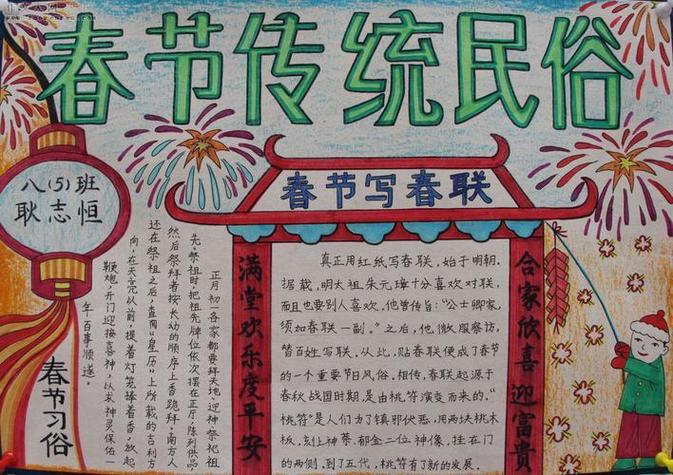 春节传统民俗
八(5)班
耿志恒
春节写春联
满堂欢乐度平安
合家欣喜迎富贵
真正用红纸写春联,始于明朝.
据载,明太祖朱元璋十分喜欢对联,
而且也要别人喜欢,他曾传旨:"公士卿家,
须加春联一副。"之后,他微服察访,
替百姓写联。从此,贴春联便成了春节
的一个重要节日风俗.相传,春联起源于
春秋战国时期,是由桃符演变而来的."
桃符"是人们为了镇邪伏恶,用两块桃木
板,刻上神荼、郁金二位神像,挂在门
的两侧,到了五代,桃符有了新的发展.
正月初一各家都要拜天地、迎神祭祀祖
先。祭祖时把祖先牌位依次摆在正厅,陈列供品
然后祭拜者按长幼的顺序上香跪拜。南方人
还在祭祖之后,查阅"皇历"上所载的吉利方
向,在天亮以前,提着灯笼捧着香,放起
鞭炮,开门迎接喜神,以求神灵保佑一
年百事顺遂。
春节习俗